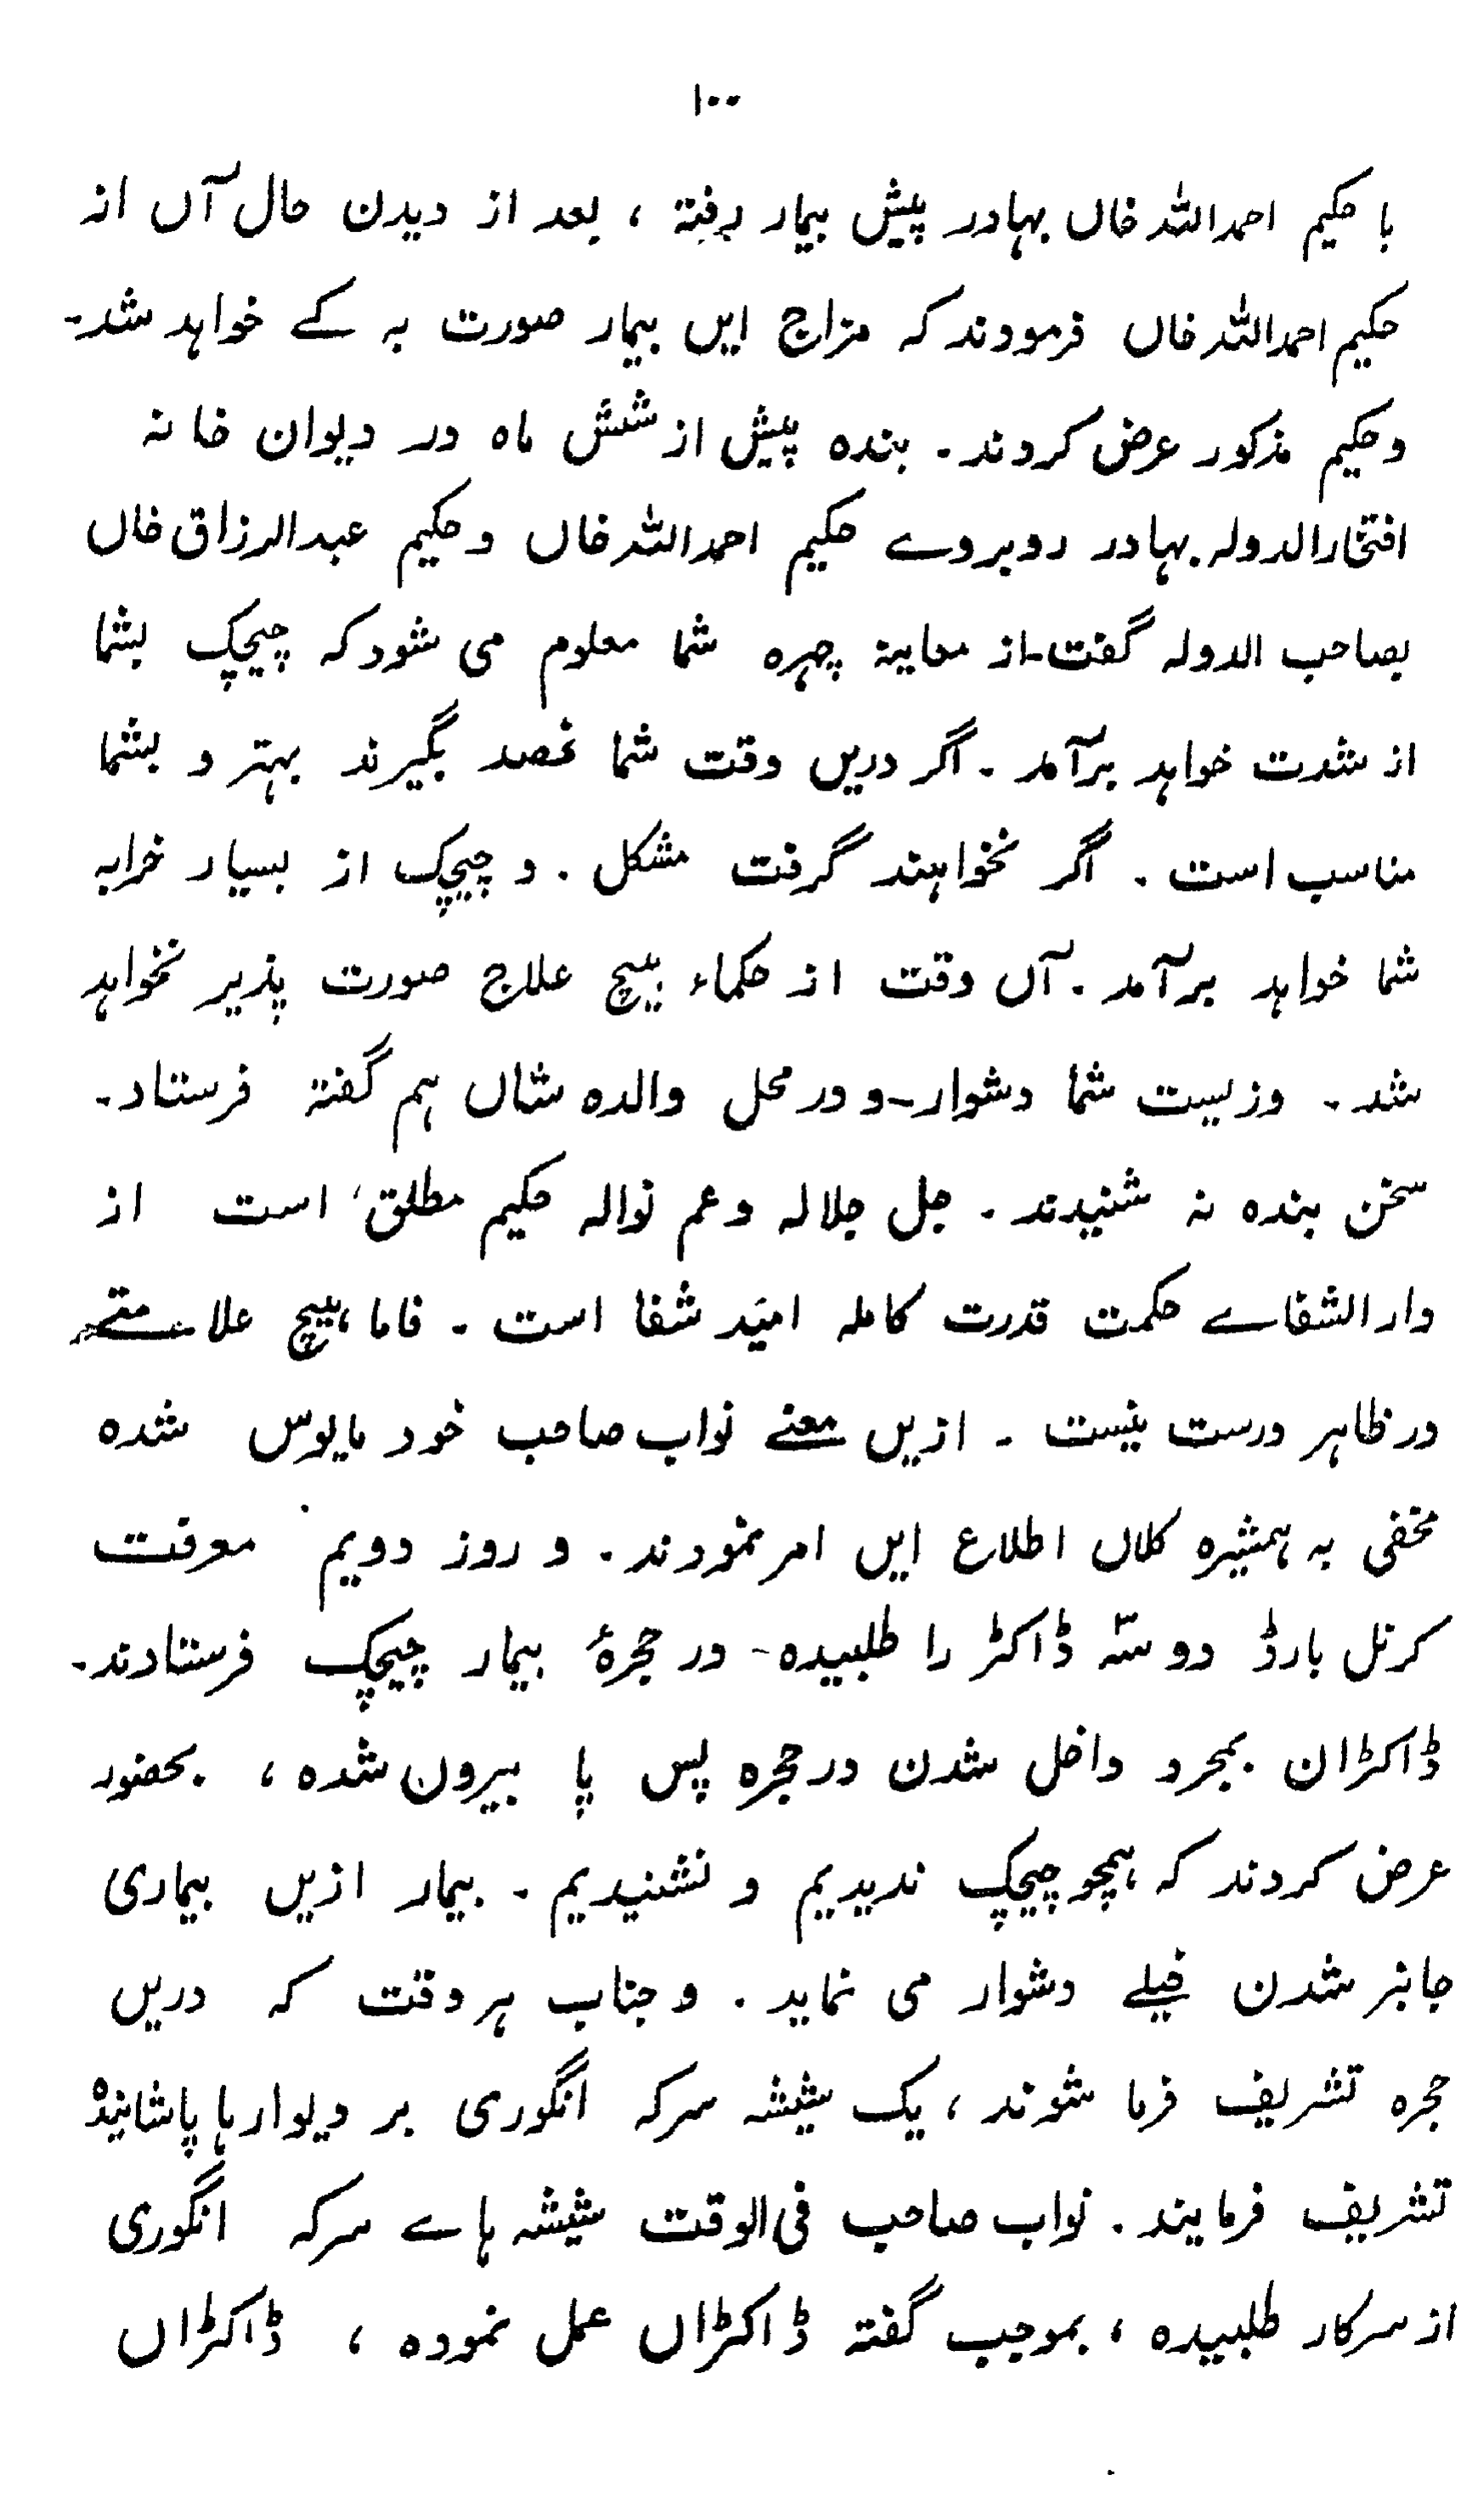 ۱۰۰
با حکیم احمد اللہ خاں بہادر پیش بیمار رفتہ ، بعد از دیدن حال آں از
حکیم احمد اللہ خاں فرمودند کہ مزاج ایں بیمار صورت بہ کے خواہد شد۔
و حکیم مذکور عرض کردند ۔ بندہ پیش از شش ماہ در دیوان خانہ
افتخار الدولہ بہادر روبروے حکیم احمد اللہ خاں و حکیم عبد الرزاق خاں
بصاحب الدولہ گفت۔ از معاینہ چہرہ شما معلوم می شود کہ چیچک بشما
از شدت خواہد برآمد ۔ اگر دریں وقت شما فصد بگیرند بہتر و بشما
مناسب است ۔ اگر نخواہند گرفت مشکل ۔ و چیچک از بسیار خرابہ
شما خواہد برآمد ۔ آں وقت از حکماء ہیچ علاج صورت پذیر نخواہد
شد ۔ وزیست شما دشوار ۔ و در محل والدہ شاں ہم گفتہ فرستاد ۔
سخن بندہ نہ شنیدند ۔ جل جلالہ و عم نوالہ حکیم مطلق است از
دار الشفاے حکمت قدرت کاملہ امید شفا است ۔ فاما ہیچ علامتے
در ظاہر درست نیست ۔ ازیں معنے نواب صاحب خود مایوس شدہ
مخفی بہ ہمشیرہ کلاں اطلاع ایں امر نمودند ۔ و روز دویم معرفت
کرنل بارڈ دو سہ ڈاکٹر را طلبیدہ ۔ در حجرۂ بیمار چیچک فرستادند ۔
ڈاکٹران بمجرد داخل شدن در حجرہ پس پا بیرون شدہ ، بحضور
عرض کردند کہ ہمچو چیچک ندیدیم و نشنیدیم ۔ بیمار ازیں بیماری
جانبر شدن خیلے دشوار می نماید ۔ و جناب ہر وقت کہ دریں
حجرہ تشریف فرما شوند ، یک شیشہ سرکہ انگوری بر دیوارہا پاشانیدہ
تشریف فرمایند ۔ نواب صاحب فی الوقت شیشہ ہاے سرکہ انگوری
از سرکار طلبیدہ ، بموجب گفتہ ڈاکٹراں عمل نمودہ ، ڈاکٹراں